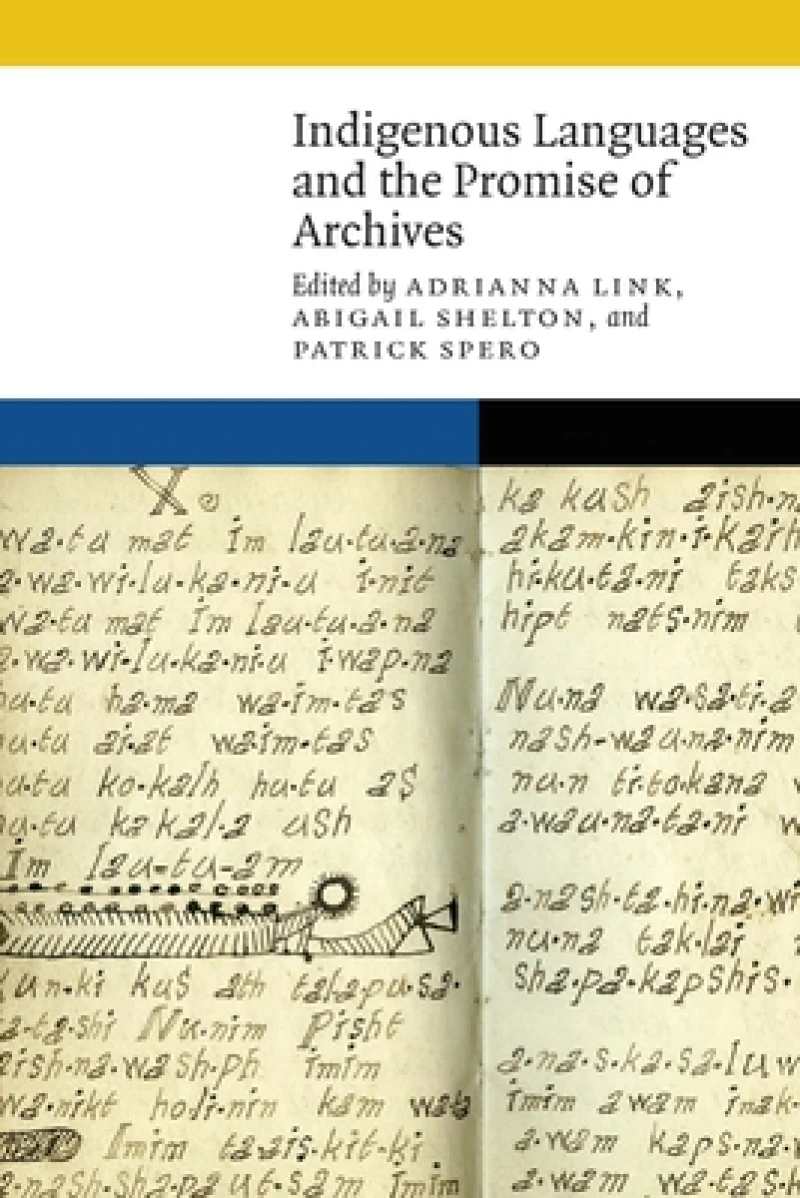 Indigenous Languages
and the Promise of
Archives
Edited by ADRIANNA LINK,
ABIGAIL SHELTON, and
PATRICK SPERO
X.
wa·tu mat im lau·tu·a·na
a·wa·wi·lu·ka·ni·u i·nit
wa·tu mat im lau·tu·a·na
a·wa·wi·lu·ka·ni·u i·wap·na
hu·tu ha·ma wa·im·tas
hu·tu ai·at wa·im·tas
hu·tu ko·kalh hu·tu as
hu·tu ka kal·a ush
Im lau-tu-am
kun·ki kus ath talapu·sa·
ta·ta·shi Nu·nim Pisht
aish·na·wash·ph imim
wa·nikt holi·nin kam
Imim ta·ais·kit·ki
a·nash·sha·pa ut·sam imim
ka kush aish·na
akam·kin·i·kaih
hi·ku·ta·ni taks
hipt nats·nim
Nu·na wa·sa·ti·a
nash-wau·na·nim
nu·n ti·to·kana
a·wau·na·ta·ni w
a·nash·ta·hi·na·wi
nu·na tak·lai
sha·pa·kapshis·
a·na·s·ka·sa·luw
imim awam inak-
a·wam kaps·na·
a·wam wa·tas·k